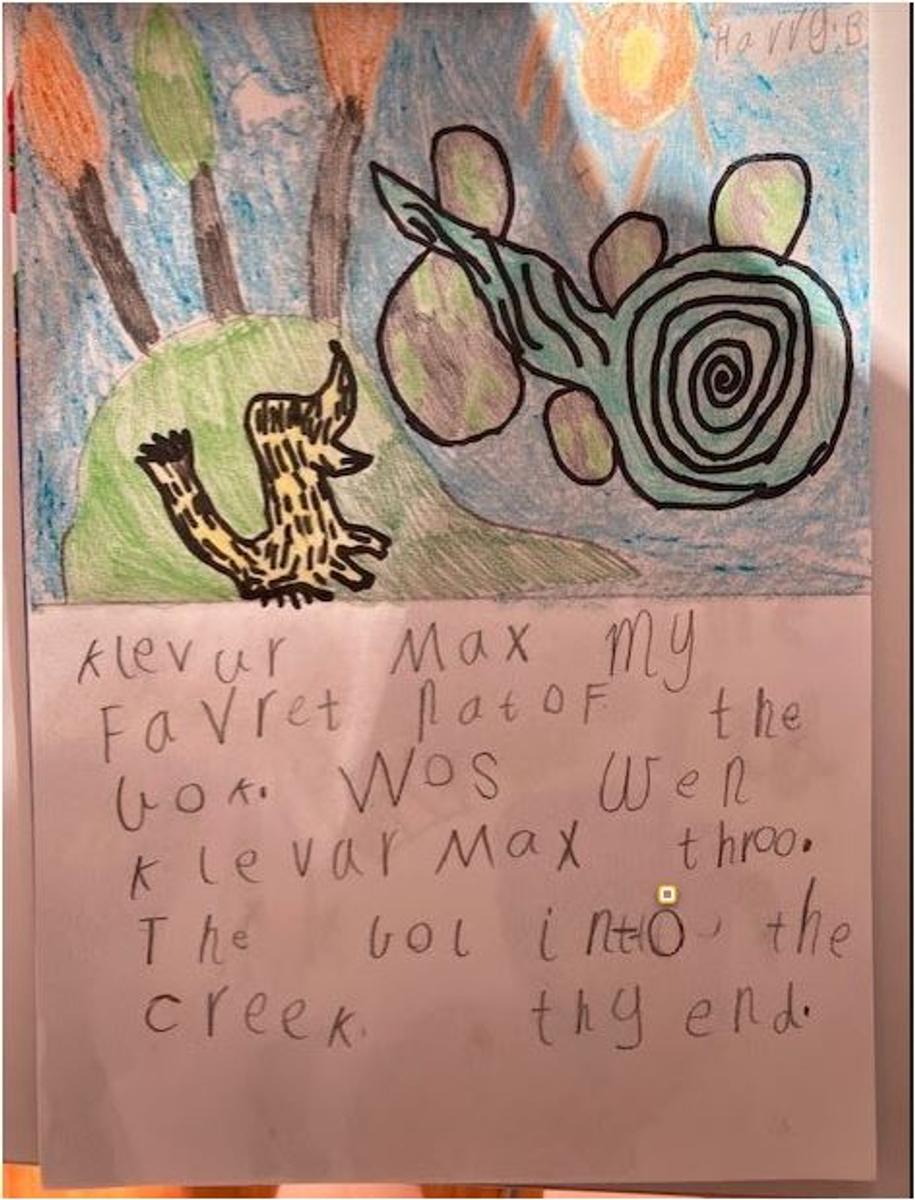 Harry.B
klevur Max My
Favret Pat OF the
bok. Wos Wen
klevar Max throo.
The bol into the
creek. thy end.